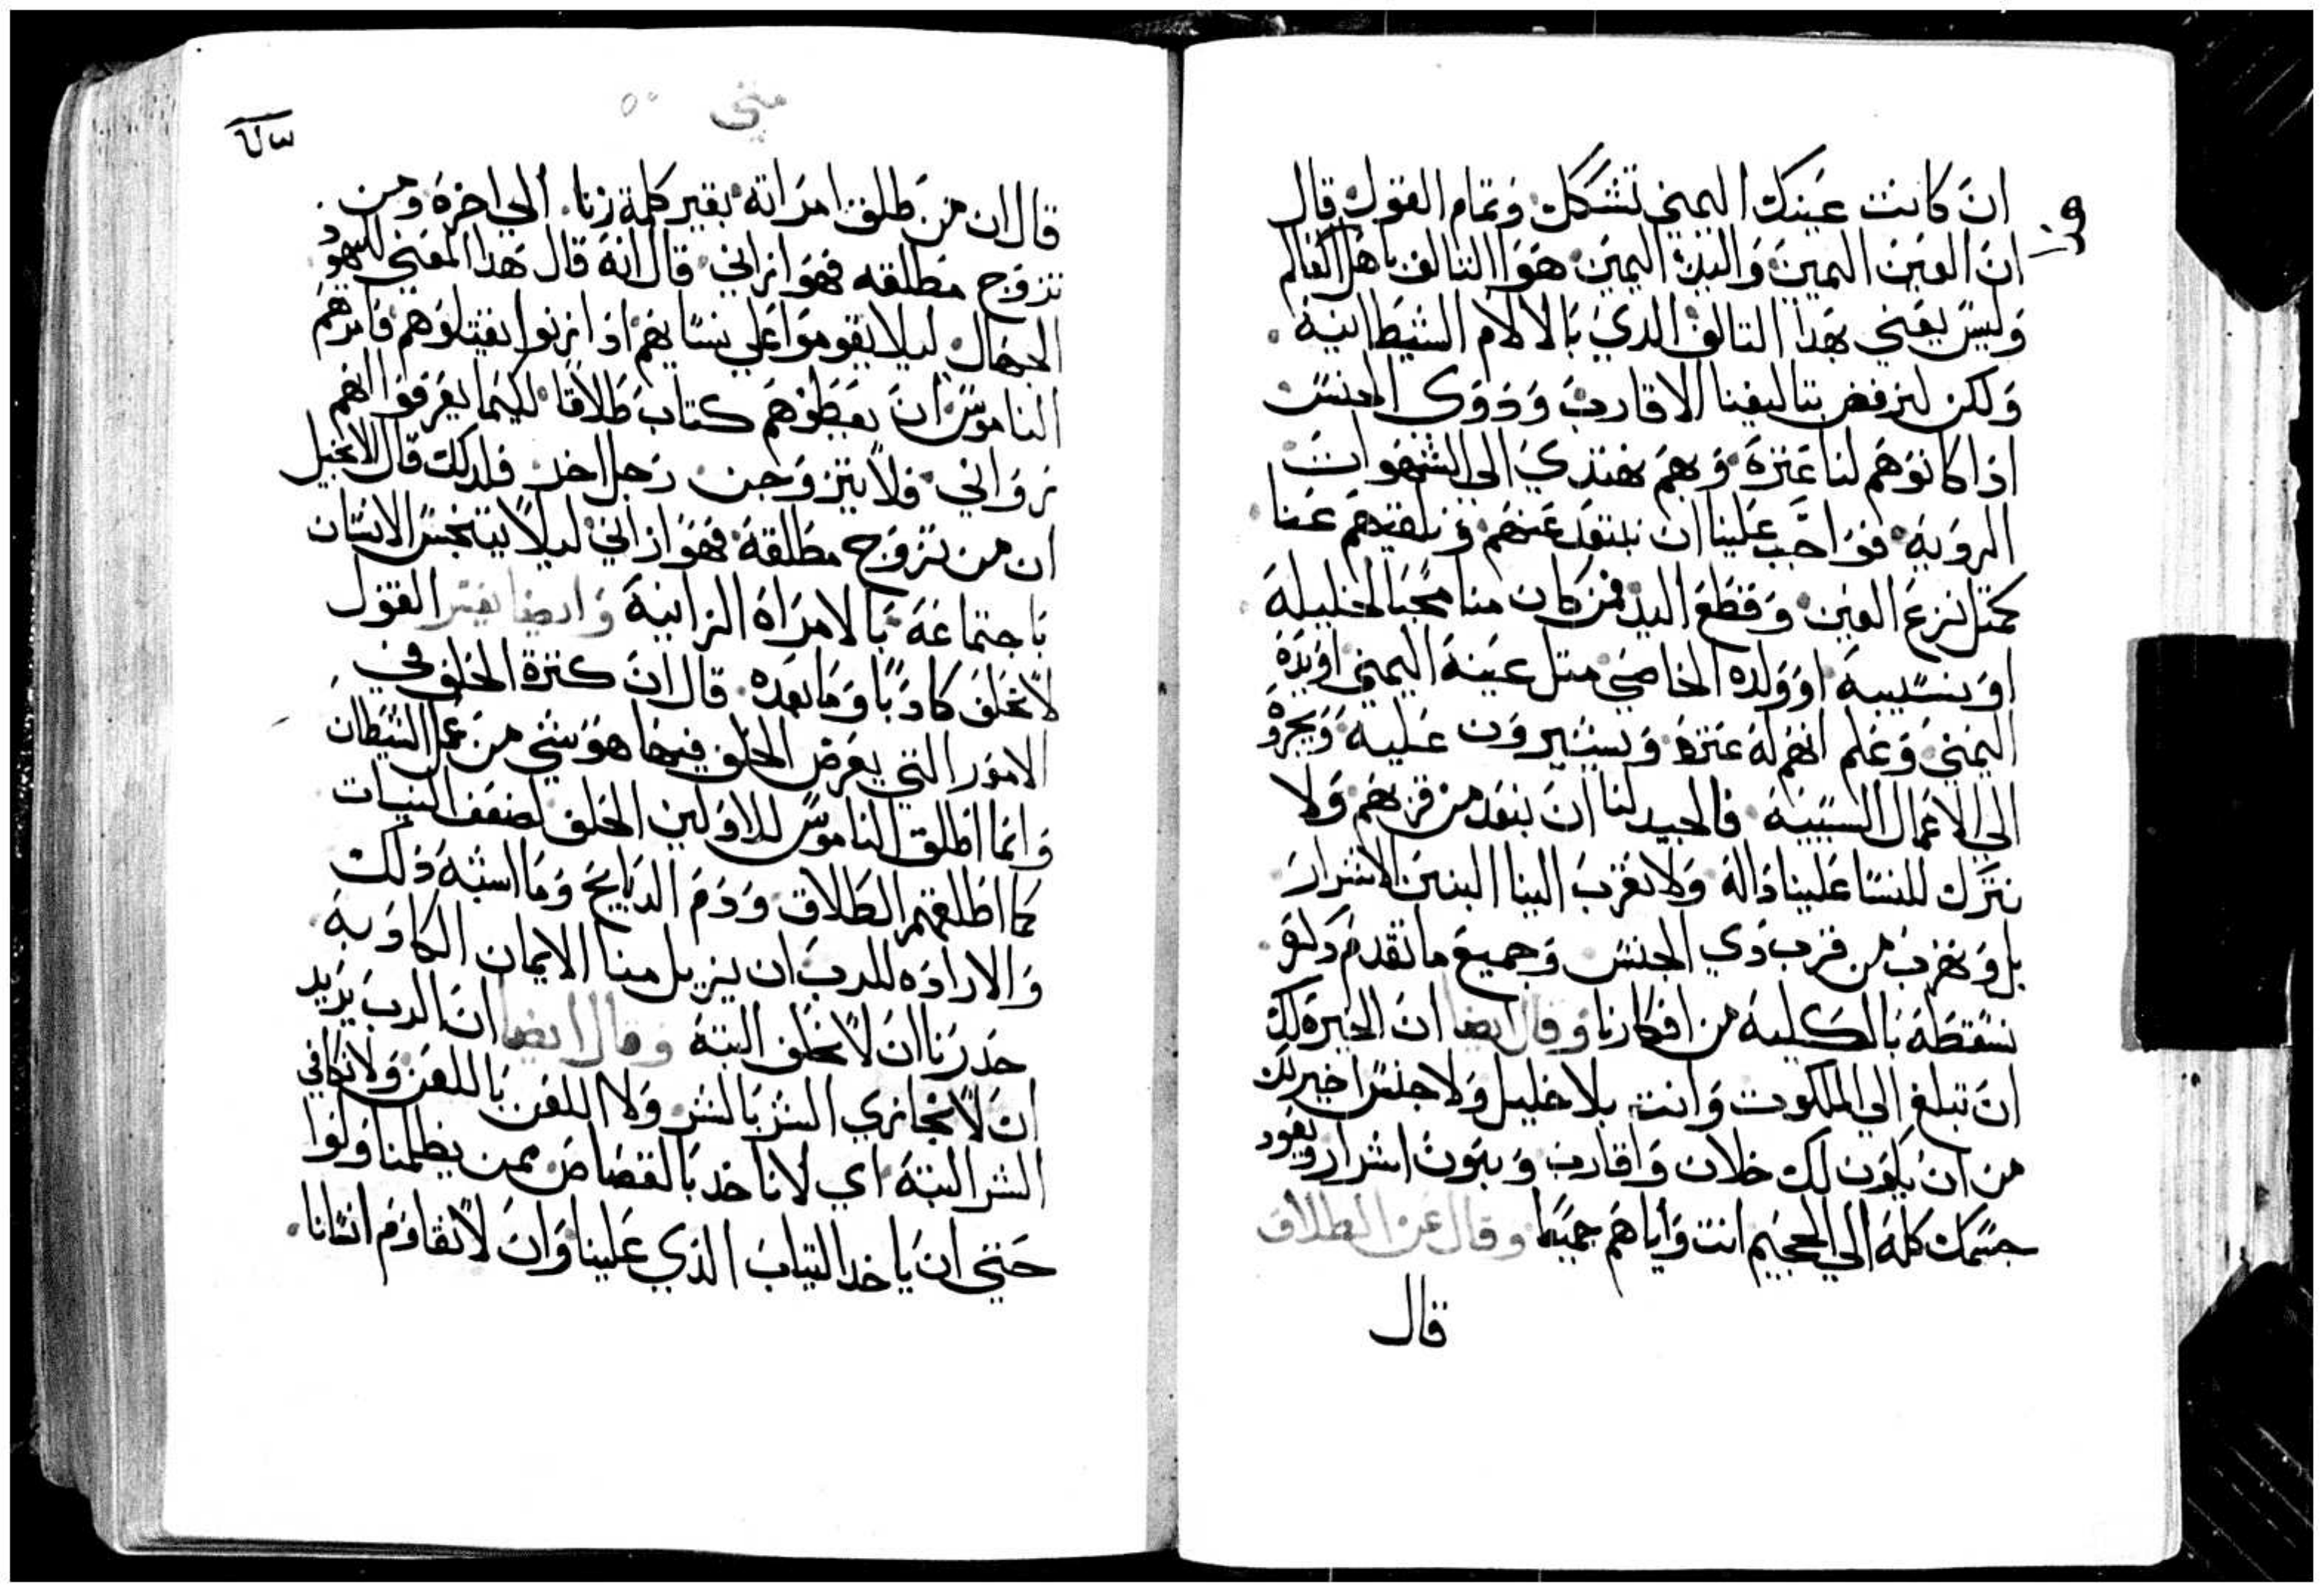 ان كانت عينك اليمني تشكك وتمام القول قال
ان العين اليمين واليد اليمين هوا التالف باهل العالم
وليس يعني بهدا التالف الدي بالالام الشيطانيه
ولكن لنرفض بتاليفنا الاقارب وذوى الجنس
اذا كانوهم لنا عترة وبهم نهتدي الي الشهوات
الرويه فواجب علينا ان نبتعد عنهم ونلقيهم عنا
كمتل نزع العين وقطع اليد فمن كان منا محبا لخليله
او بنسيبه او ولده الخاصي متل عينه اليمني او يده
اليمني وعلم انهم له عترة ويستيرون عليه ويجروه
الي الاعمال السييه فالجيد لنا ان نبعد من قربهم ولا
نترك للنسا علينا داله ولا نقرب الينا البنين الاشرار
بل ونهرب من قرب دي الجنس وجميع ما تقدم دكره
نسقطه بالكليه من افكارنا وقال ايضا ان الخيرة لك
ان تبلغ الي الملكوت وانت بلا خليل ولا جنس اخير لك
من ان يكون لك خلان واقارب وبنون اشرار ويعود
جسمك كله الي الجحيم انت واياهم جميعا وقال عن الطلاق
قال
متي ٥٠
قال ان من طلق امراته بغير كلمة زنا الي اخره ومن
تزوج مطلقه فهوا زاني قال انه قال هدا المعني لليهود
الجهال ليلا يقوموا علي نسايهم اذا زنوا يقتلوهم فامرهم
الناموس ان يعطوهم كتاب طلاقا لكيما يعرفوا انهم
زواني ولا يتزوجن رجل اخر فلدلك قال الانجيل
ان من تزوج مطلقه فهوا زاني ليلا يتنجس الانسان
باجتماعه بالامراة الزانيه وايضا يفسر القول
لا تحلف كادبا وما بعده قال ان كترة الحلف في
الامور التي يعرض الحلف فيها هو شي من عمل الشيطان
وانما اطلق الناموس للاولين الحلف لضعف النيات
كما اطلقتهم الطلاق ودم الدبايح وما اشبه ذلك
والاراده للرب ان يزيل منا الايمان الكادبه
حدرنا ان لا نحلف البته وقال ايضا ان الرب يريد
ان لا نجازي الشر بالشر ولا اللعن باللعن ولا نكافي
الشر البته اي لا ناخد بالقصاص ممن يظلمنا ولوا
حتي ان ياخد التياب الذي علينا وان لا نقاوم انسانا